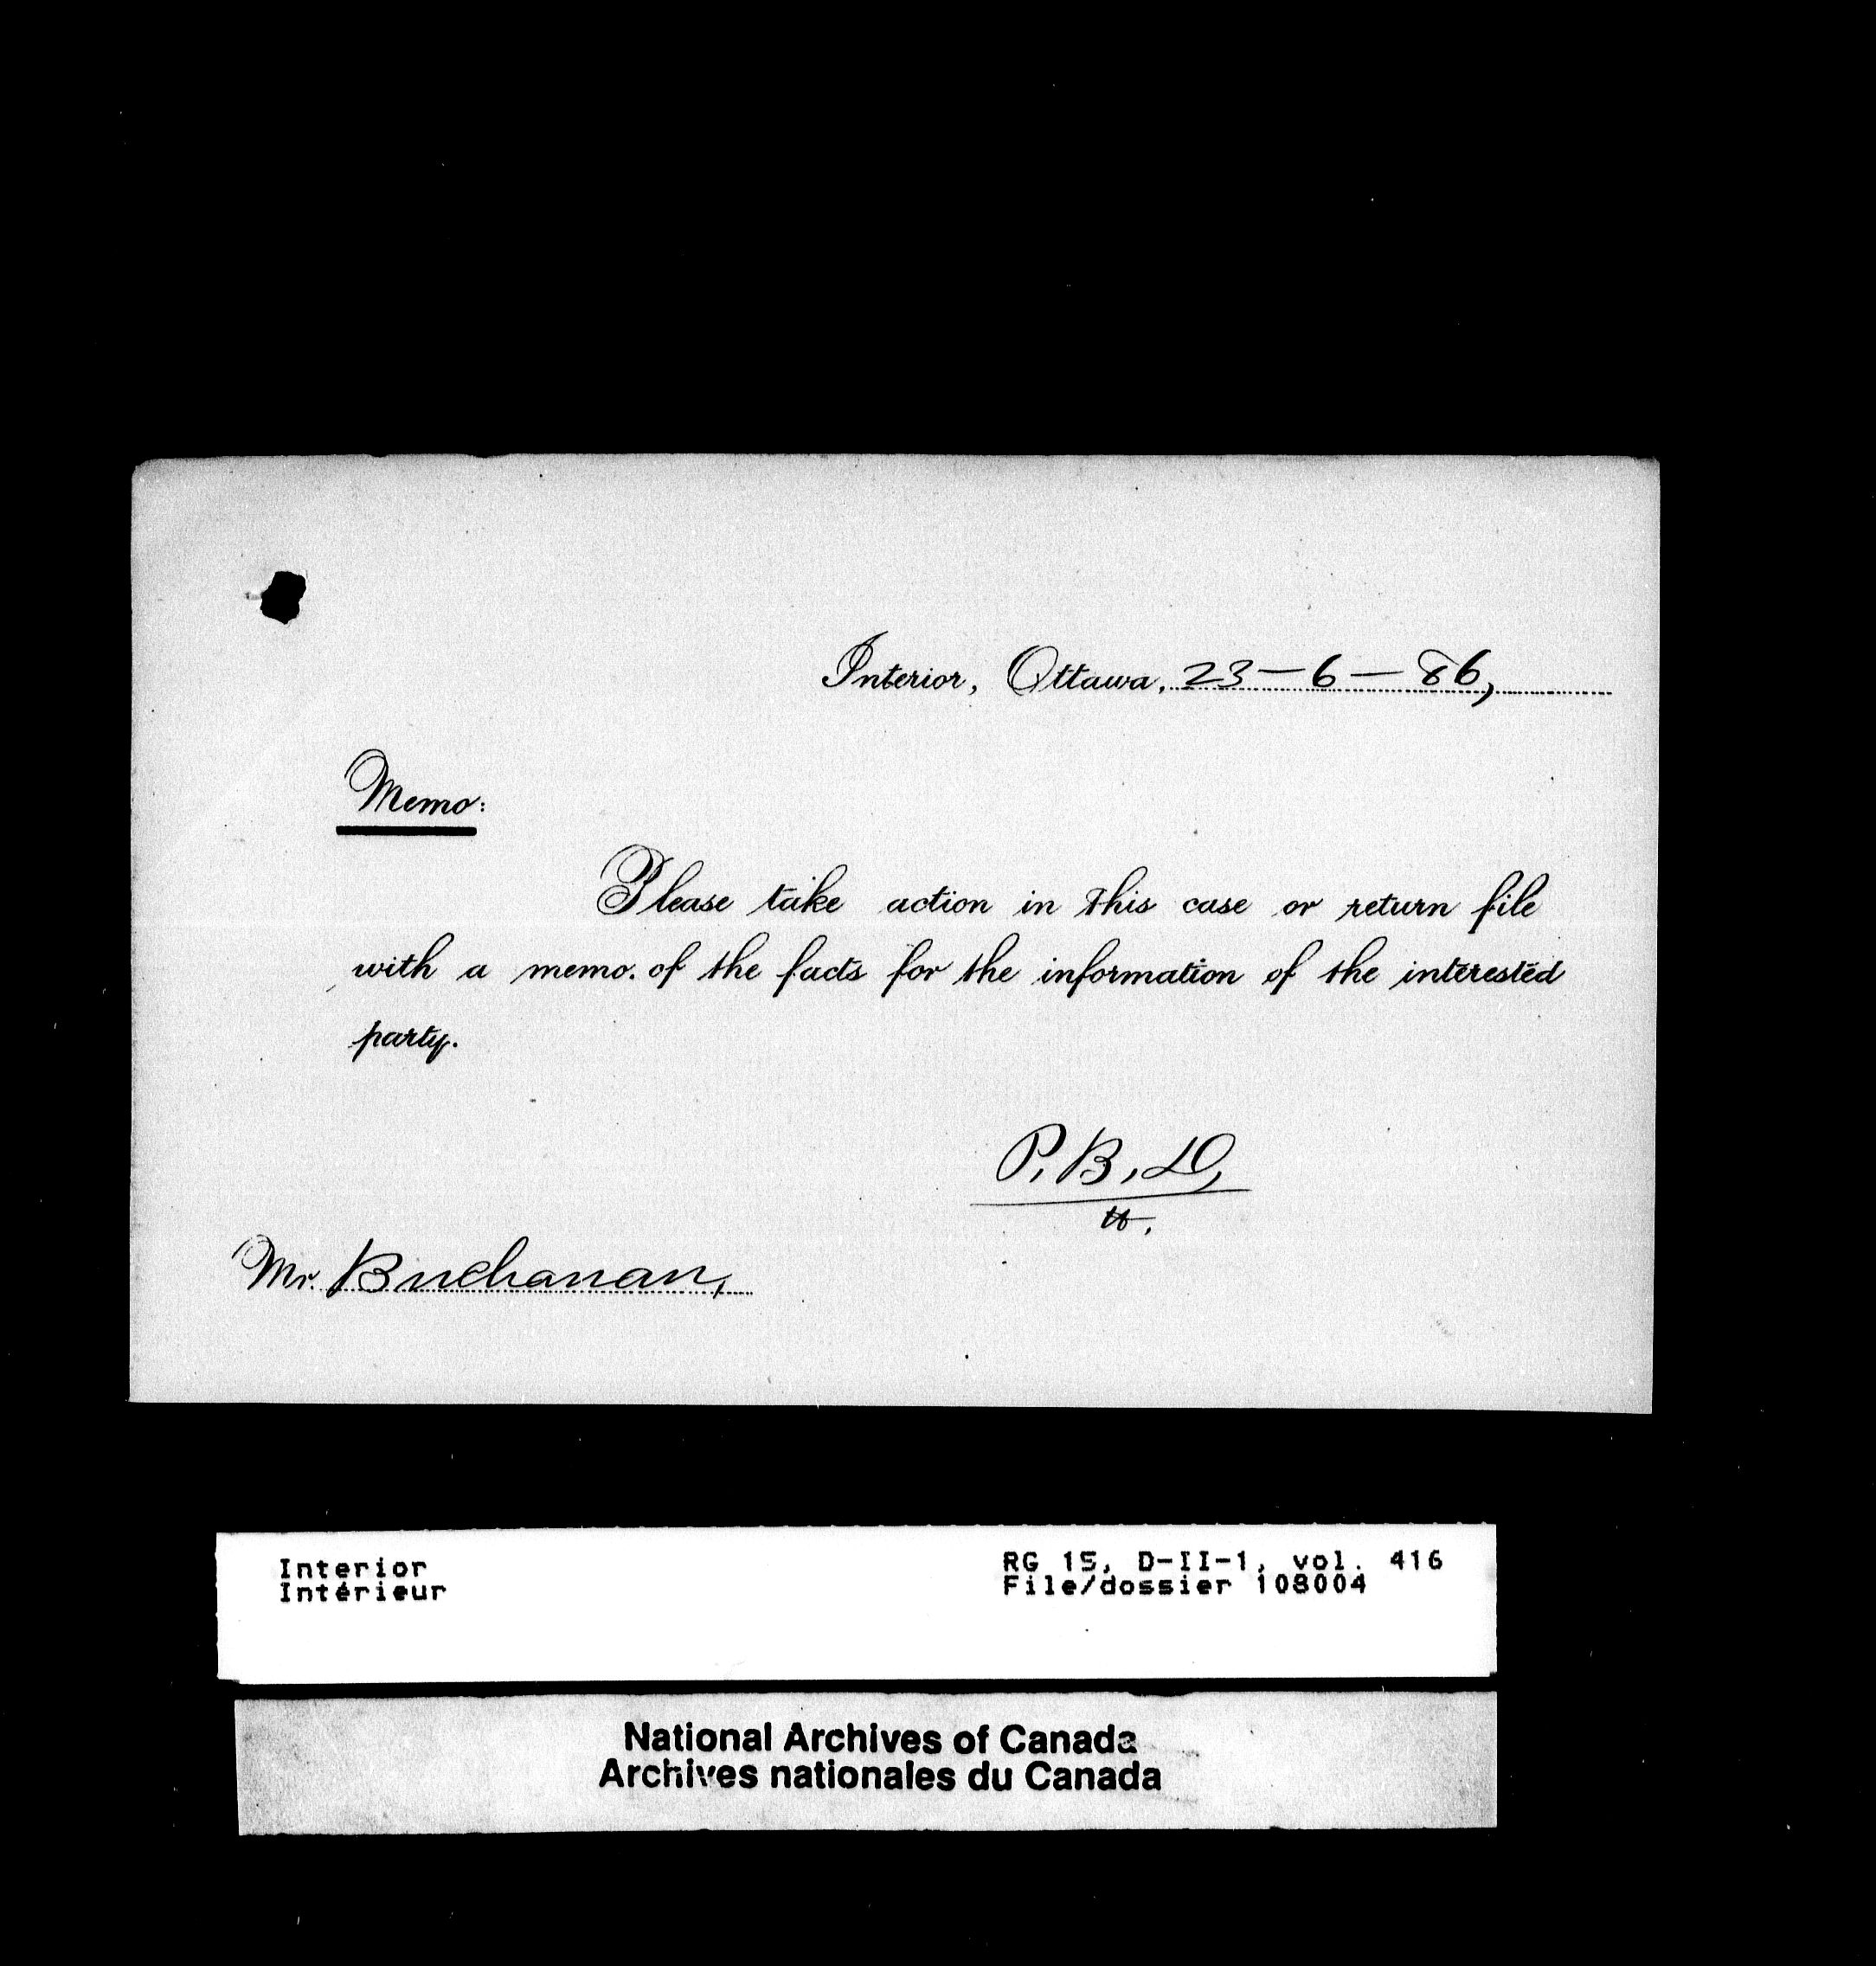 Interior, Ottawa, 23-6-86,
Memo:
Please take action in this case or return file
with a memo. of the facts for the information of the interested
party.
P. B. D,
Mr. Buchanan,
Interior
Intérieur
RG 15, D-II-1, vol. 416
File/dossier 108004
National Archives of Canada
Archives nationales du Canada